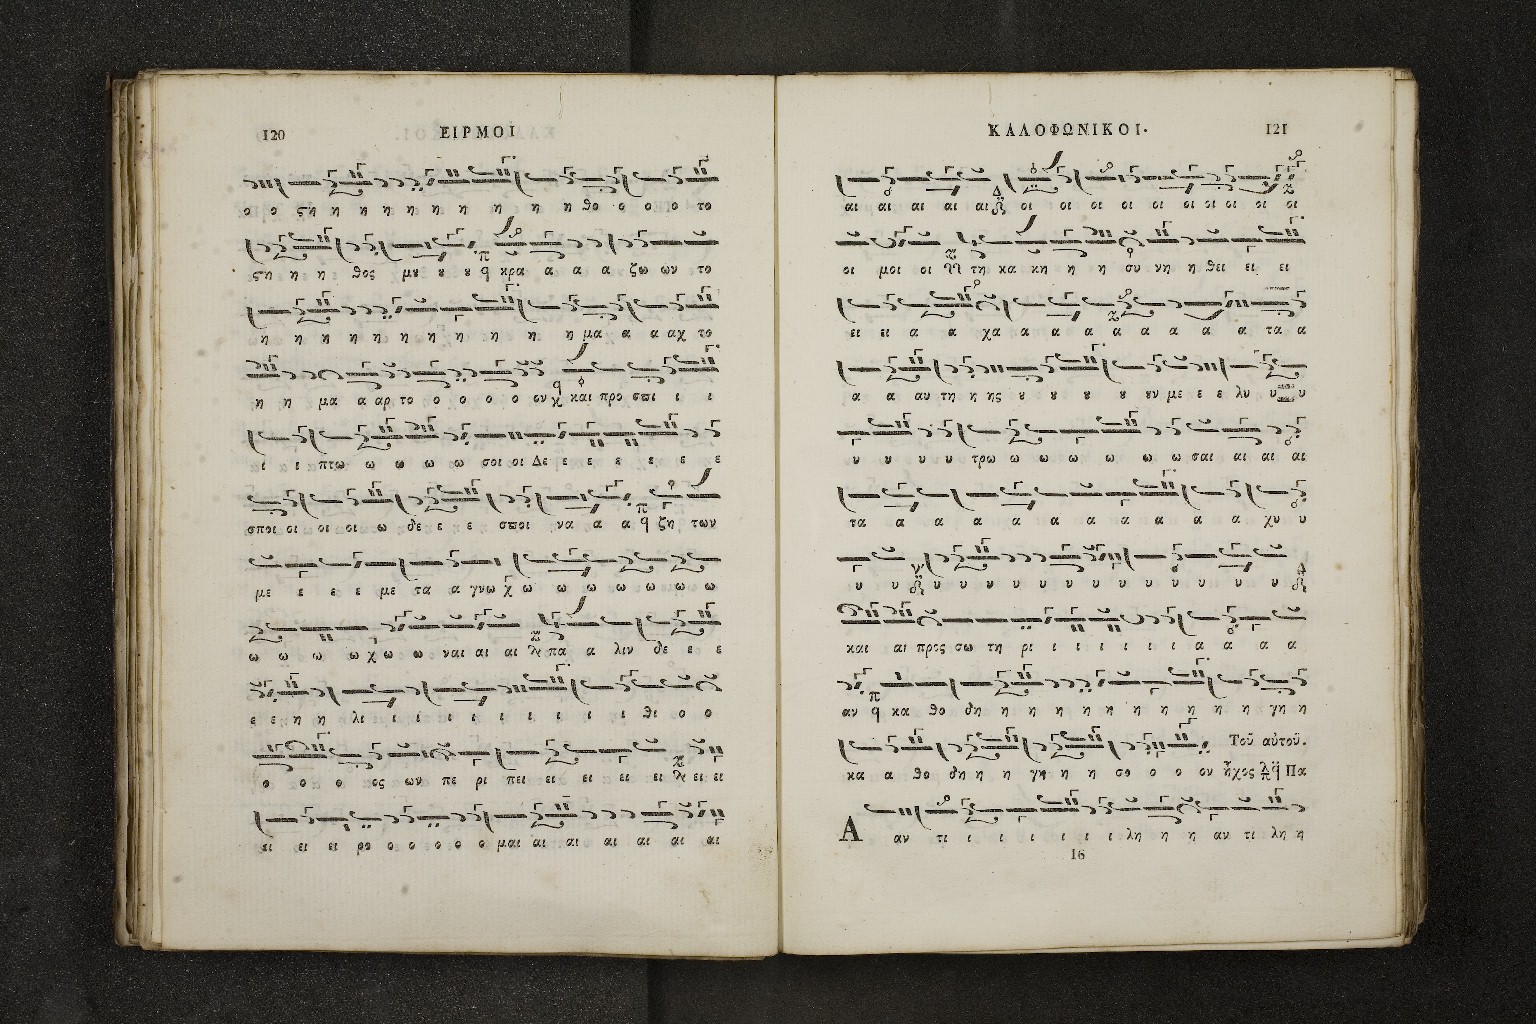 120 ΕΙΡΜΟΙ
ο ο ςη η η η η η η η η η θο ο ο ο το
ςη η η θος μȣ ȣ ȣ κρα α α α ζω ων το
η η η η η η η η η η μα α α αχ το
η η μα α αρ το ο ο ο ο ον και προ σπι ι ι
ι ι πτω ω ω ω ω σοι οι Δε ε ε ε ε ε ε
σποι οι οι οι ω δε ε ε σποι να α α ζη των
με ε ε ε με τα α γνω χ ω ω ω ω ω ω ω
ω ω ω ω χ ω ω ναι αι αι πα α λιν δε ε ε
ε ε η η λι ι ι ι ι ι ι ι ι ι θι ο ο
ο ο ο ος ων πε ρι πει ει ει ει ει ει ει ει
ει ει ει ρο ο ο ο ο ο μαι αι αι αι αι αι αι
ΚΑΛΟΦΩΝΙΚΟΙ. 121
αι αι αι αι αι οι οι οι οι οι οι οι οι οι οι
οι μοι οι τη κα κη η η συ νη η θει ει ει
ει ει α α χα α α α α α α α α τα α
α α αυ τη η ης ȣ ȣ ȣ ȣ ȣν με ε ε λυ υ υ
υ υ υ υ τρω ω ω ω ω ω ω σαι αι αι αι
τα α α α α α α α α α α χυ υ
υ υ υ υ υ υ υ υ υ υ υ υ υ υ υ υ
και αι προς σω τη ρι ι ι ι ι ι ι α α α α
αν κα θο δη η η η η η η η η η η γη η
κα α θο δη η η γη η η σο ο ο ον Τοῦ αὐτοῦ. ἦχος Πα
Α αν τι ι ι ι ι ι ι λη η η αν τι λη η
16